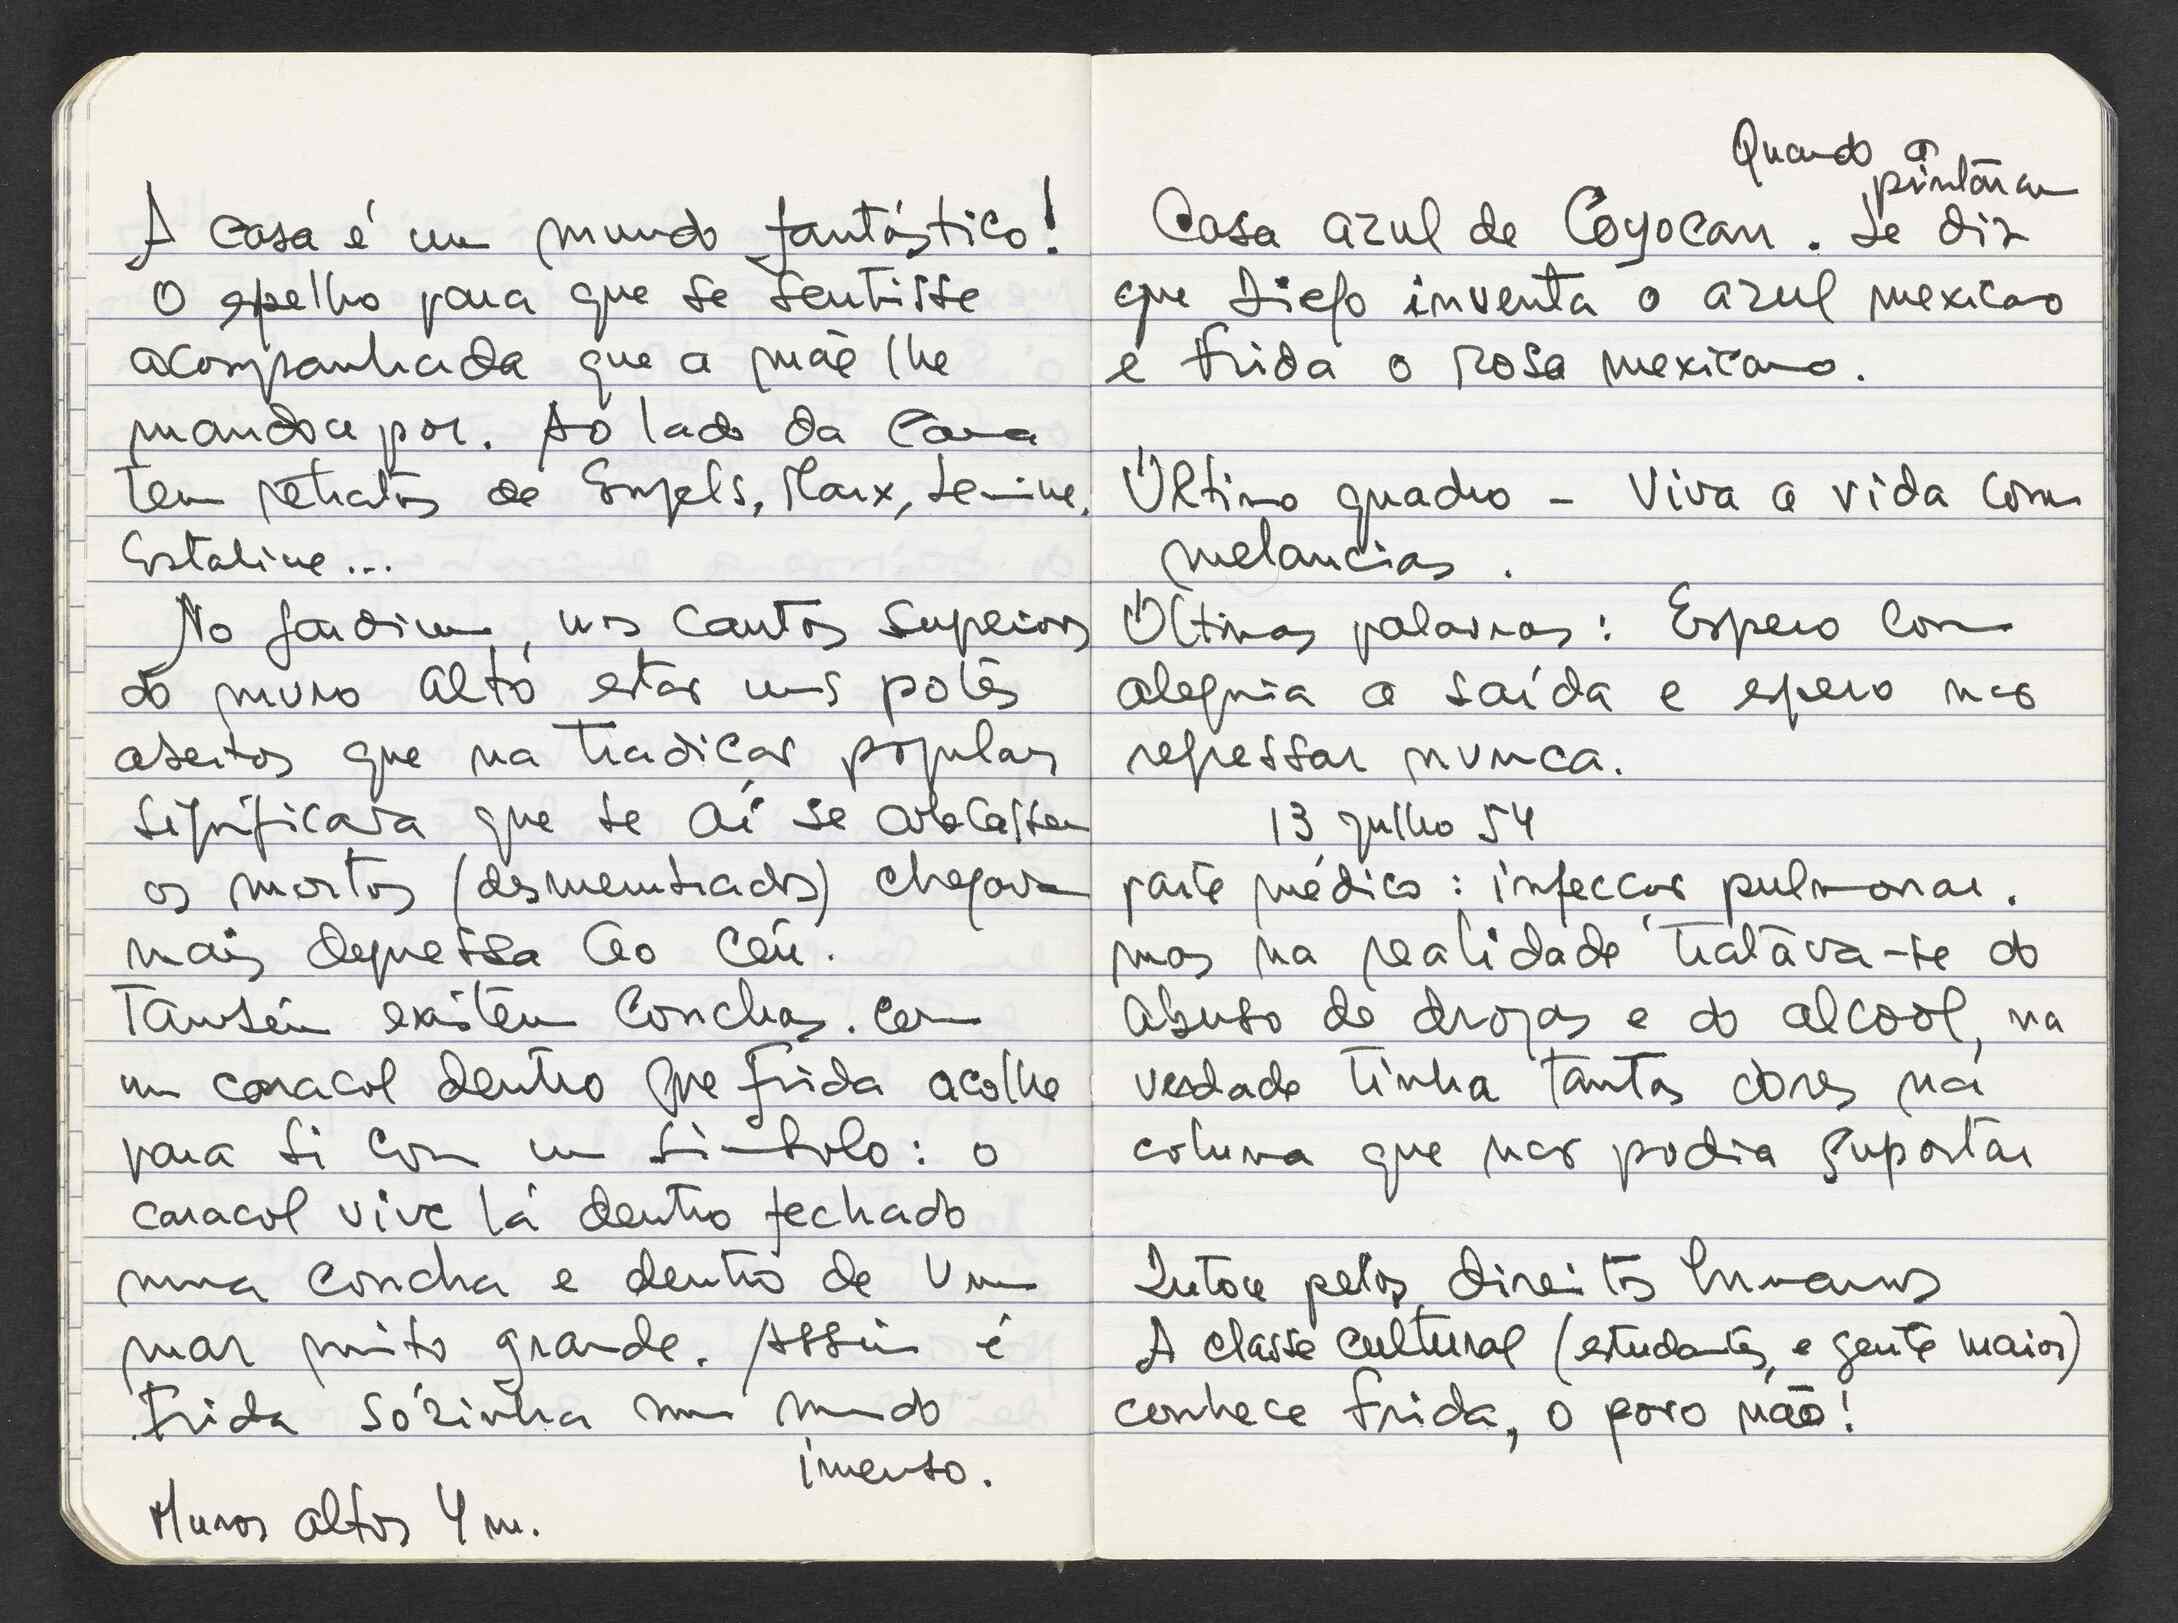 A casa é um mundo fantástico!
O espelho para que se sentisse
acompanhada que a mãe lhe
mandou por. Ao lado da cama
tem retratos de Engels, Marx, Lenine,
Estaline...
No jardim, nos cantos superiores
do muro alto estão uns potes
abertos que na tradição popular
significava que se aí se colocassem
os mortos (desmembrados) chegavam
mais depressa ao céu.
Também existem conchas. com
um caracol dentro que Frida acolhe
para si com um símbolo: o
caracol vive lá dentro fechado
numa concha e dentro de um
mar muito grande. Assim é
Frida sózinha num mundo
imenso.
Muros altos 4 m.
Quando a
pintaram
Casa azul de Coyocan. Se diz
que Diego inventa o azul mexicano
e Frida o rosa mexicano.
Último quadro - Viva a vida com
melancias.
Últimas palavras: Espero com
alegria a saída e espero não
regressar nunca.
13 julho 54
parte médico: infecção pulmonar.
mas na realidade tratava-se do
abuso de drogas e do alcool, na
verdade tinha tantas dores na
coluna que não podia suportar
Lutou pelos direitos humanos
A classe cultural (estudantes, e gente maior)
conhece Frida, o povo não!